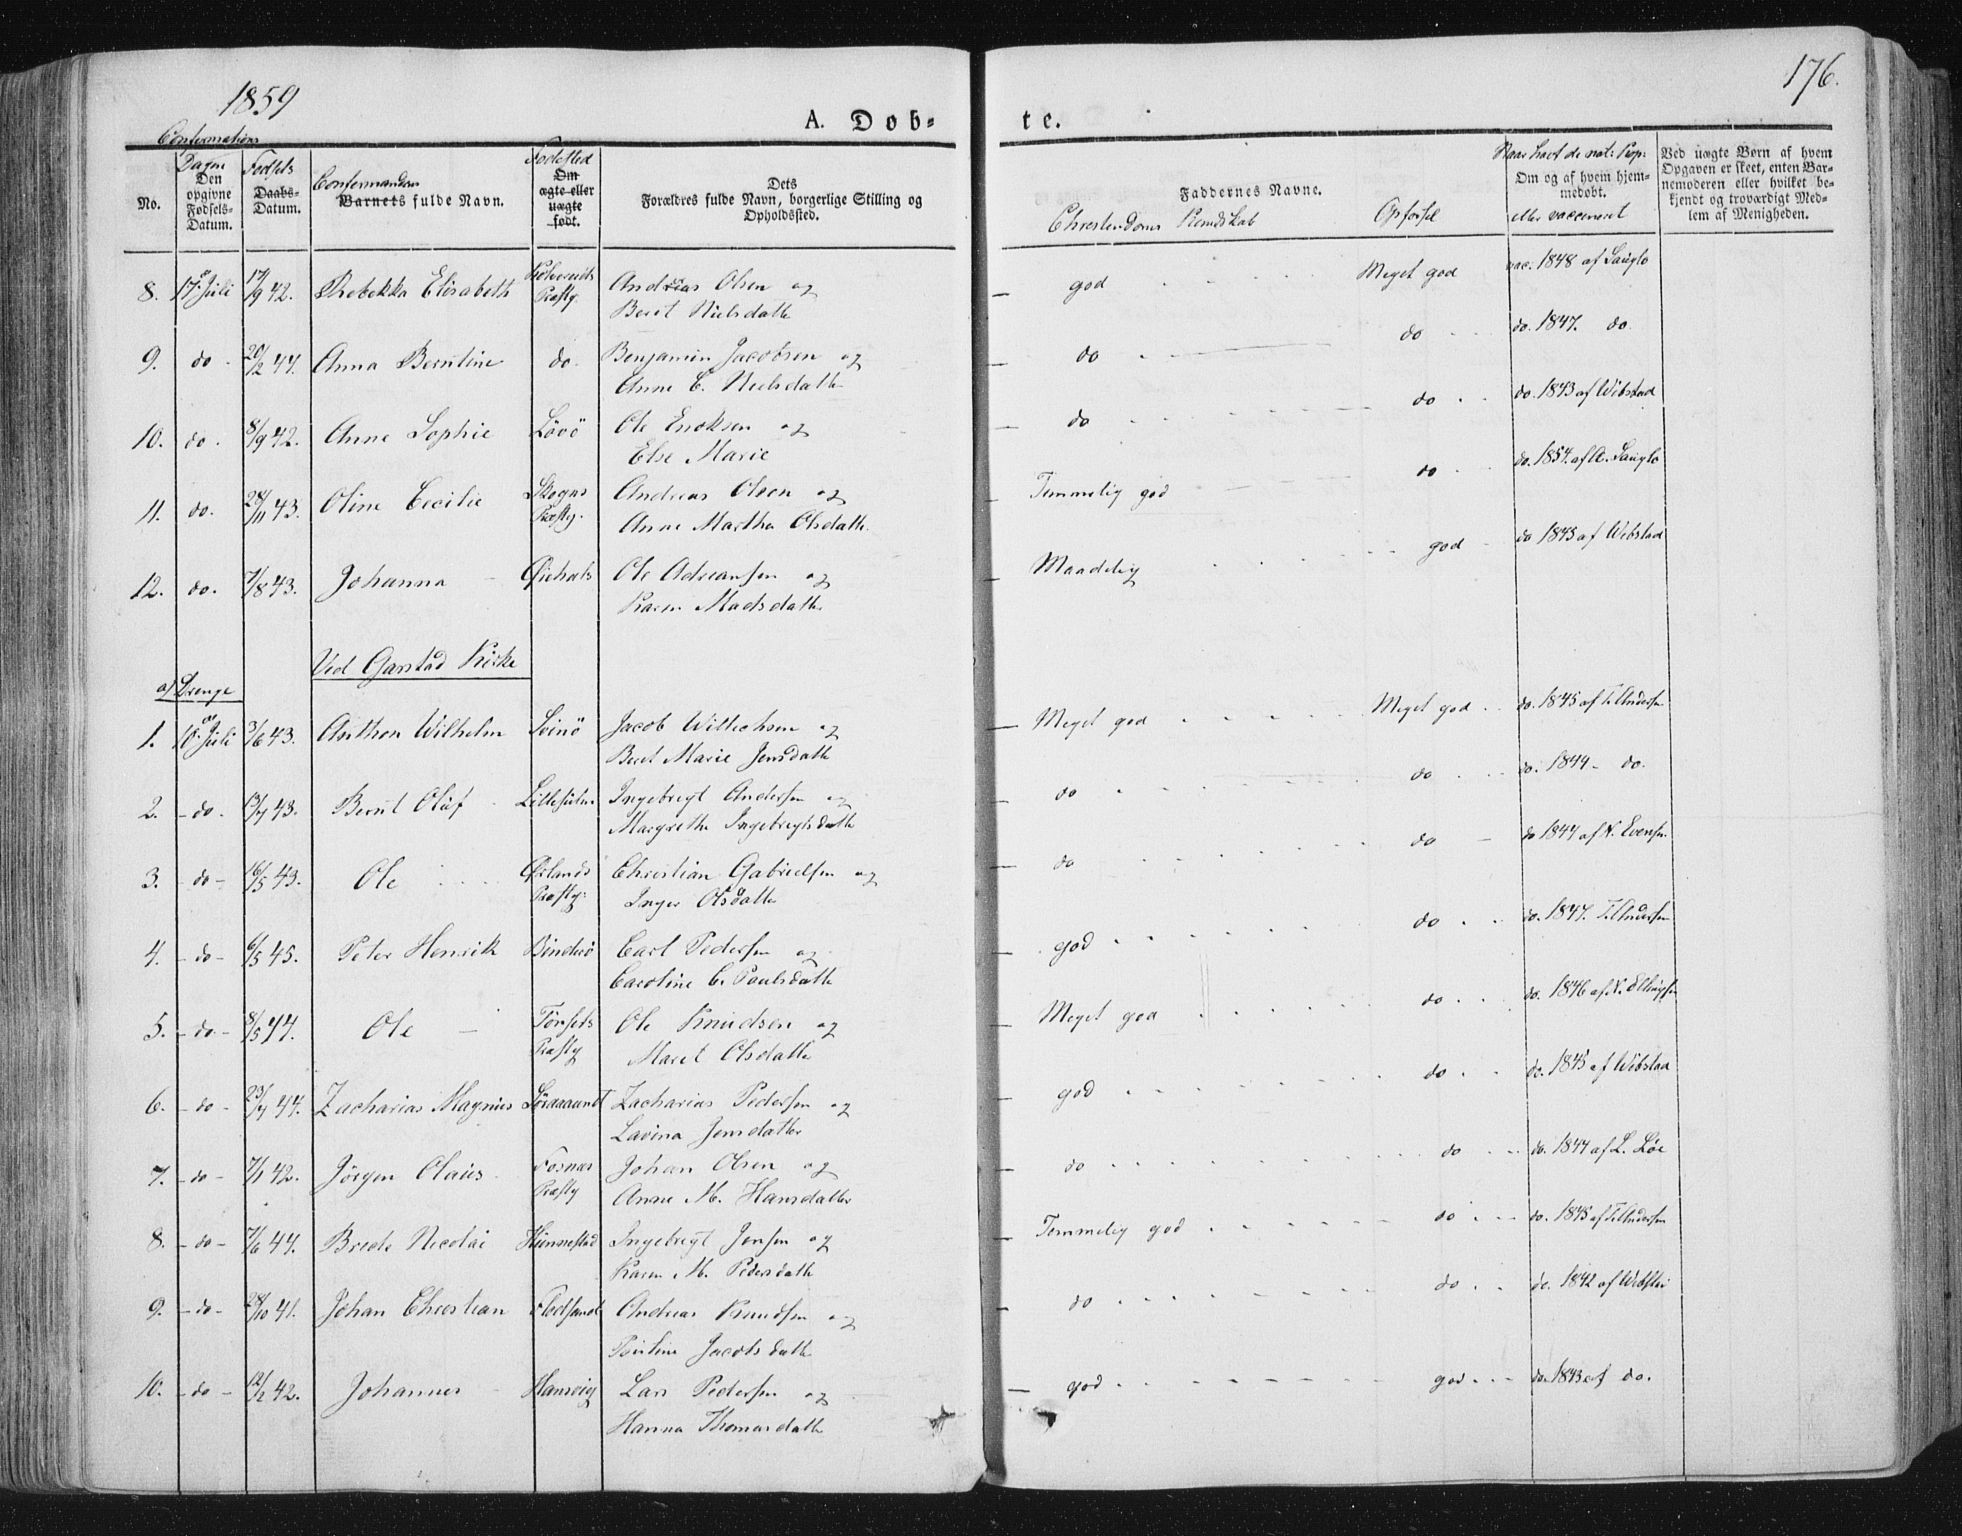 1859
176.
A. Dob-
te.
Confirmations
Dagen
Den opgivne Fødsels-Datum.
Fødsels
Daabs-Datum.
Confirmandens
Barnets fulde Navn.
Fødested
Om ægte eller uægte født.
No.
Dets
Forældres fulde Navn, borgerlige Stilling og
Opholdssted.
Faddernes Navne.
Christendoms Kundskab
Opførsel
Naar havt de nat: Kop:
Om og af hvem hjem-
medøbt.
eller vaccineret
Ved uægte Børn af hvem
Opgaven er skeet, enten Bar-
nemoderen eller hvilket be-
kjendt og troværdigt Med-
lem af Menigheden.
8. 17de Juli 17/9 42. Rebekka Elisabeth Kolvereids Præstg. Andreas Olsen og
Berit Nielsdatter
god Meget god vac. 1848 af Sauglo
9. do 20/2 44. Anna Berntine do. Benjamin Jacobsen og
Anne C. Nielsdatter
do do do. 1847. do.
10. do. 8/9 42. Anne Sophie Løvö Ole Eriksen og
Else Marie
do do do. 1843 af Wibstad
11. do. 24/11 43. Oline Cecilie Skogns Præstg. Andreas Olsen og
Anne Martha Olsdatter
Temmelig god do do. 1854. af A. Sauglo
12. do. 7/8 43. Johanna Ole Adriansen og
Karen Madsdatter
Maadelig god do 1845 af Wibstad
Ved Garstad Kirke
a) Drenge
1. 10de Juli 3/6 43. Anthon Wilhelm Svinö Jacob Willechsen og
Berit Marie Jensdatter
Meget god Meget god do. 1845 af T. Andersen
2. do. 13/4 43. Bernt Oluf Ingebrigt Andersen og
Margrethe Ingebrigtsdatter
do do do. 1844 do.
3. do 16/5 43. Ole Ørlands Præstg. Christian Gabrielsen og
Inger Olsdatter
do do do 1847 af N. Evensen
4. do 6/5 45. Peter Henrik Carl Pedersen og
Caroline C. Paulsdatter
god do do. 1847. T. Andersen
5. do 8/5 44. Ole Tönsets Præstg Ole Knudsen og
Maret Olsdatter
Meget god do do. 1846 af N. Ellingsen
6. do 23/4 44. Zacharias Magnus Zacharias Pedersen og
Lavina Jensdatter
god do do. 1845 af Wibstad
7. do 7/1 42. Jörgen Olaus Fosnæs Præstg Johan Olsen og
Anne M. Hansdatter
do do do. 1844 af L. Löe
8. do 7/6 44. Brede Nicolai Hunnestad Ingebrigt Jensen og
Karen M. Pedersdatter
Temmelig god do do. 1845 af T. Andersen
9. do 28/10 41. Johan Christian Flodsand Andreas Knudsen og
Jacobsdatter
do do do. 1842 af
10. do 12/2 42. Johannes Hansvig Lars Pedersen og
Hanna Thomasdatter
god god do. 1843 af do.